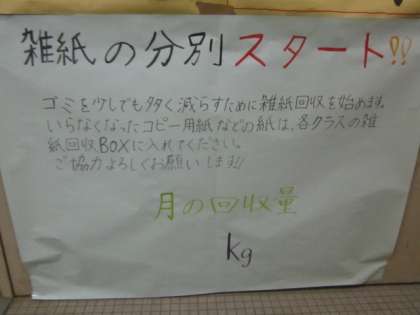 雑紙の分別スタート!!
ゴミを少しでも多く減らすために雑紙回収を始めます。
いらなくなったコピー用紙などの紙は、各クラスの雑
紙回収BOXに入れてください。
ご協力よろしくお願いします!!
月の回収量
kg